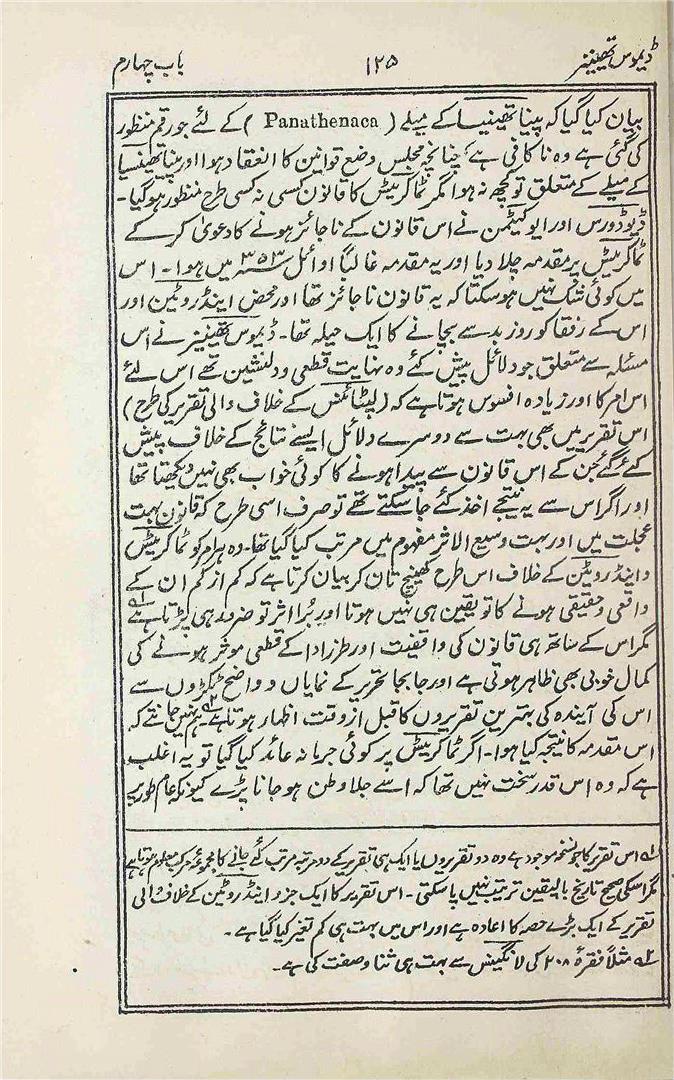 ڈیموس تھینیز ۱۲۵ باب چہارم
بیان کیا گیا کہ پینا تھینیسا کے میلے ( Panathenaca ) کے لئے جو رقم منظور
کی گئی ہے وہ ناکافی ہے، چنانچہ مجلس وضع قوانین کا انعقاد ہوا اور پینا تھینسیا
کے میلے کے متعلق تو کچھ نہ ہوا مگر ٹماکریٹس کا قانون کسی نہ کسی طرح منظور ہوگیا۔
ڈیوڈورس اور ایوکٹیمن نے اس قانون کے ناجائز ہونے کا دعویٰ کر کے
ٹماکریٹس پر مقدمہ چلا دیا اور یہ مقدمہ غالباً اوائل ۳۵۳ میں ہوا۔ اس
میں کوئی شک نہیں ہوسکتا کہ یہ قانون ناجائز تھا اور محض اینڈروٹین اور
اس کے رفقا کو روز بد سے بچانے کا ایک حیلہ تھا۔ ڈیموس تھینیز نے اس
مسئلہ سے متعلق جو دلائل پیش کئے وہ نہایت قطعی و دلنشین تھے اس لئے
اس امر کا اور زیادہ افسوس ہوتا ہے کہ (لپٹائنس کے خلاف والی تقریر کی طرح)
اس تقریر میں بھی بہت سے دوسرے دلائل ایسے نتائج کے خلاف پیش
کئے گئے جن کے اس قانون سے پیدا ہونے کا کوئی خواب بھی نہیں دیکھتا تھا
اور اگر اس سے یہ نتیجے اخذ کئے جاسکتے تھے تو صرف اسی طرح کہ قانون بہت
عجلت میں اور بہت وسیع الاثر مفہوم میں مرتب کیا گیا تھا۔ وہ ہر امر کو ٹماکریٹس
و اینڈروٹین کے خلاف اس طرح کھینچ تان کر بیان کرتا ہے کہ کم از کم ان کے
واقعی و حقیقی ہونے کا تو یقین ہی نہیں ہوتا اور برا اثر تو ضرور ہی پڑتا ہے ۱؎
مگر اس کے ساتھ ہی قانون کی واقفیت اور طرز ادا کے قطعی موخر ہونے کی
کمال خوبی بھی ظاہر ہوتی ہے اور جابجا تحریر کے نمایاں و واضح ٹکڑوں سے
اس کی آیندہ کی بہترین تقریروں کا قبل از وقت اظہار ہوتا ہے ۲؎ ہم نہیں جانتے کہ
اس مقدمہ کا نتیجہ کیا ہوا۔ اگر ٹماکریٹس پر کوئی جرمانہ عائد کیا گیا تو یہ اغلب
ہے کہ وہ اس قدر سخت نہیں تھا کہ اسے جلاوطن ہوجانا پڑے کیونکہ عام طور پر
۱؎ اس تقریر کا جو نسخہ موجود ہے وہ دو تقریروں یا ایک ہی تقریر کے دو مرتبہ مرتب کئے جانے کا مجموعہ مرکب معلوم ہوتا ہے
مگر اسکی صحیح تاریخ بالیقین ترتیب نہیں پاسکتی۔ اس تقریر کا ایک جزو اینڈروٹین کے خلاف والی
تقریر کے ایک بڑے حصہ کا اعادہ ہے اور اس میں بہت ہی کم تغیر کیا گیا ہے۔
۲؎ مثلاً فقرۂ ۲۰۸ کی لانگینس نے بہت ہی ثنا و صفت کی ہے۔